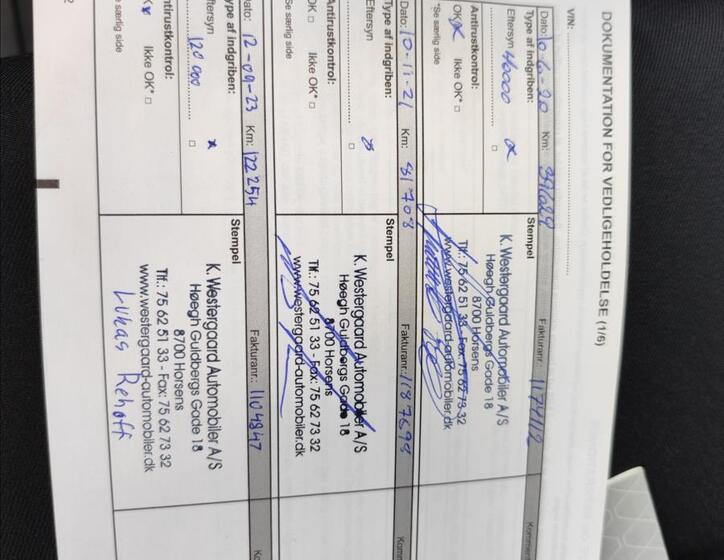 DOKUMENTATION FOR VEDLIGEHOLDELSE (1/6)
VIN:
Dato: Km: Fakturanr.:
Type af indgriben: Stempel
Eftersyn
K. Westergaard Automobiler A/S
Høegh Guldbergs Gade 18
8700 Horsens
Tlf.: 75 62 51 33 - Fax: 75 62 73 32
www.westergaard-automobiler.dk
Antirustkontrol:
OK Ikke OK*
*Se særlig side
Dato: 10-11-21 Km: 81708 Fakturanr.: 1187698
Type af indgriben: Stempel
Eftersyn
K. Westergaard Automobiler A/S
Høegh Guldbergs Gade 18
8700 Horsens
Tlf.: 75 62 51 33 - Fax: 75 62 73 32
www.westergaard-automobiler.dk
Antirustkontrol:
OK Ikke OK*
Se særlig side
ato: 12-09-23 Km: 122254 Fakturanr.: 1104847
ype af indgriben: Stempel
ftersyn 120 000 x
K. Westergaard Automobiler A/S
Høegh Guldbergs Gade 18
8700 Horsens
Tlf.: 75 62 51 33 - Fax: 75 62 73 32
www.westergaard-automobiler.dk
Lukas Rehoff
ntirustkontrol:
K Ikke OK*
særlig side
2